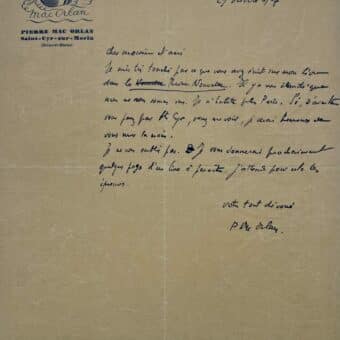 Mac Orlan
PIERRE MAC ORLAN
Saint-Cyr-sur-Morin
(Seine-et-Marne)
cher monsieur et ami
Je suis très touché par ce que vous avez écrit sur mon livre
dans la Revue Nouvelle. Il y a
nous ne nous sommes vus. Je n'habite plus Paris. Si, d'aventure
vous passez par St Cyr, venez me voir, je serai heureux de
vous serrer la main.
Je ne vous oublie pas. Je vous donnerai prochainement
quelques pages d'un livre à paraître. J'attends pour cela les
épreuves.
votre tout dévoué
P. Mac Orlan.